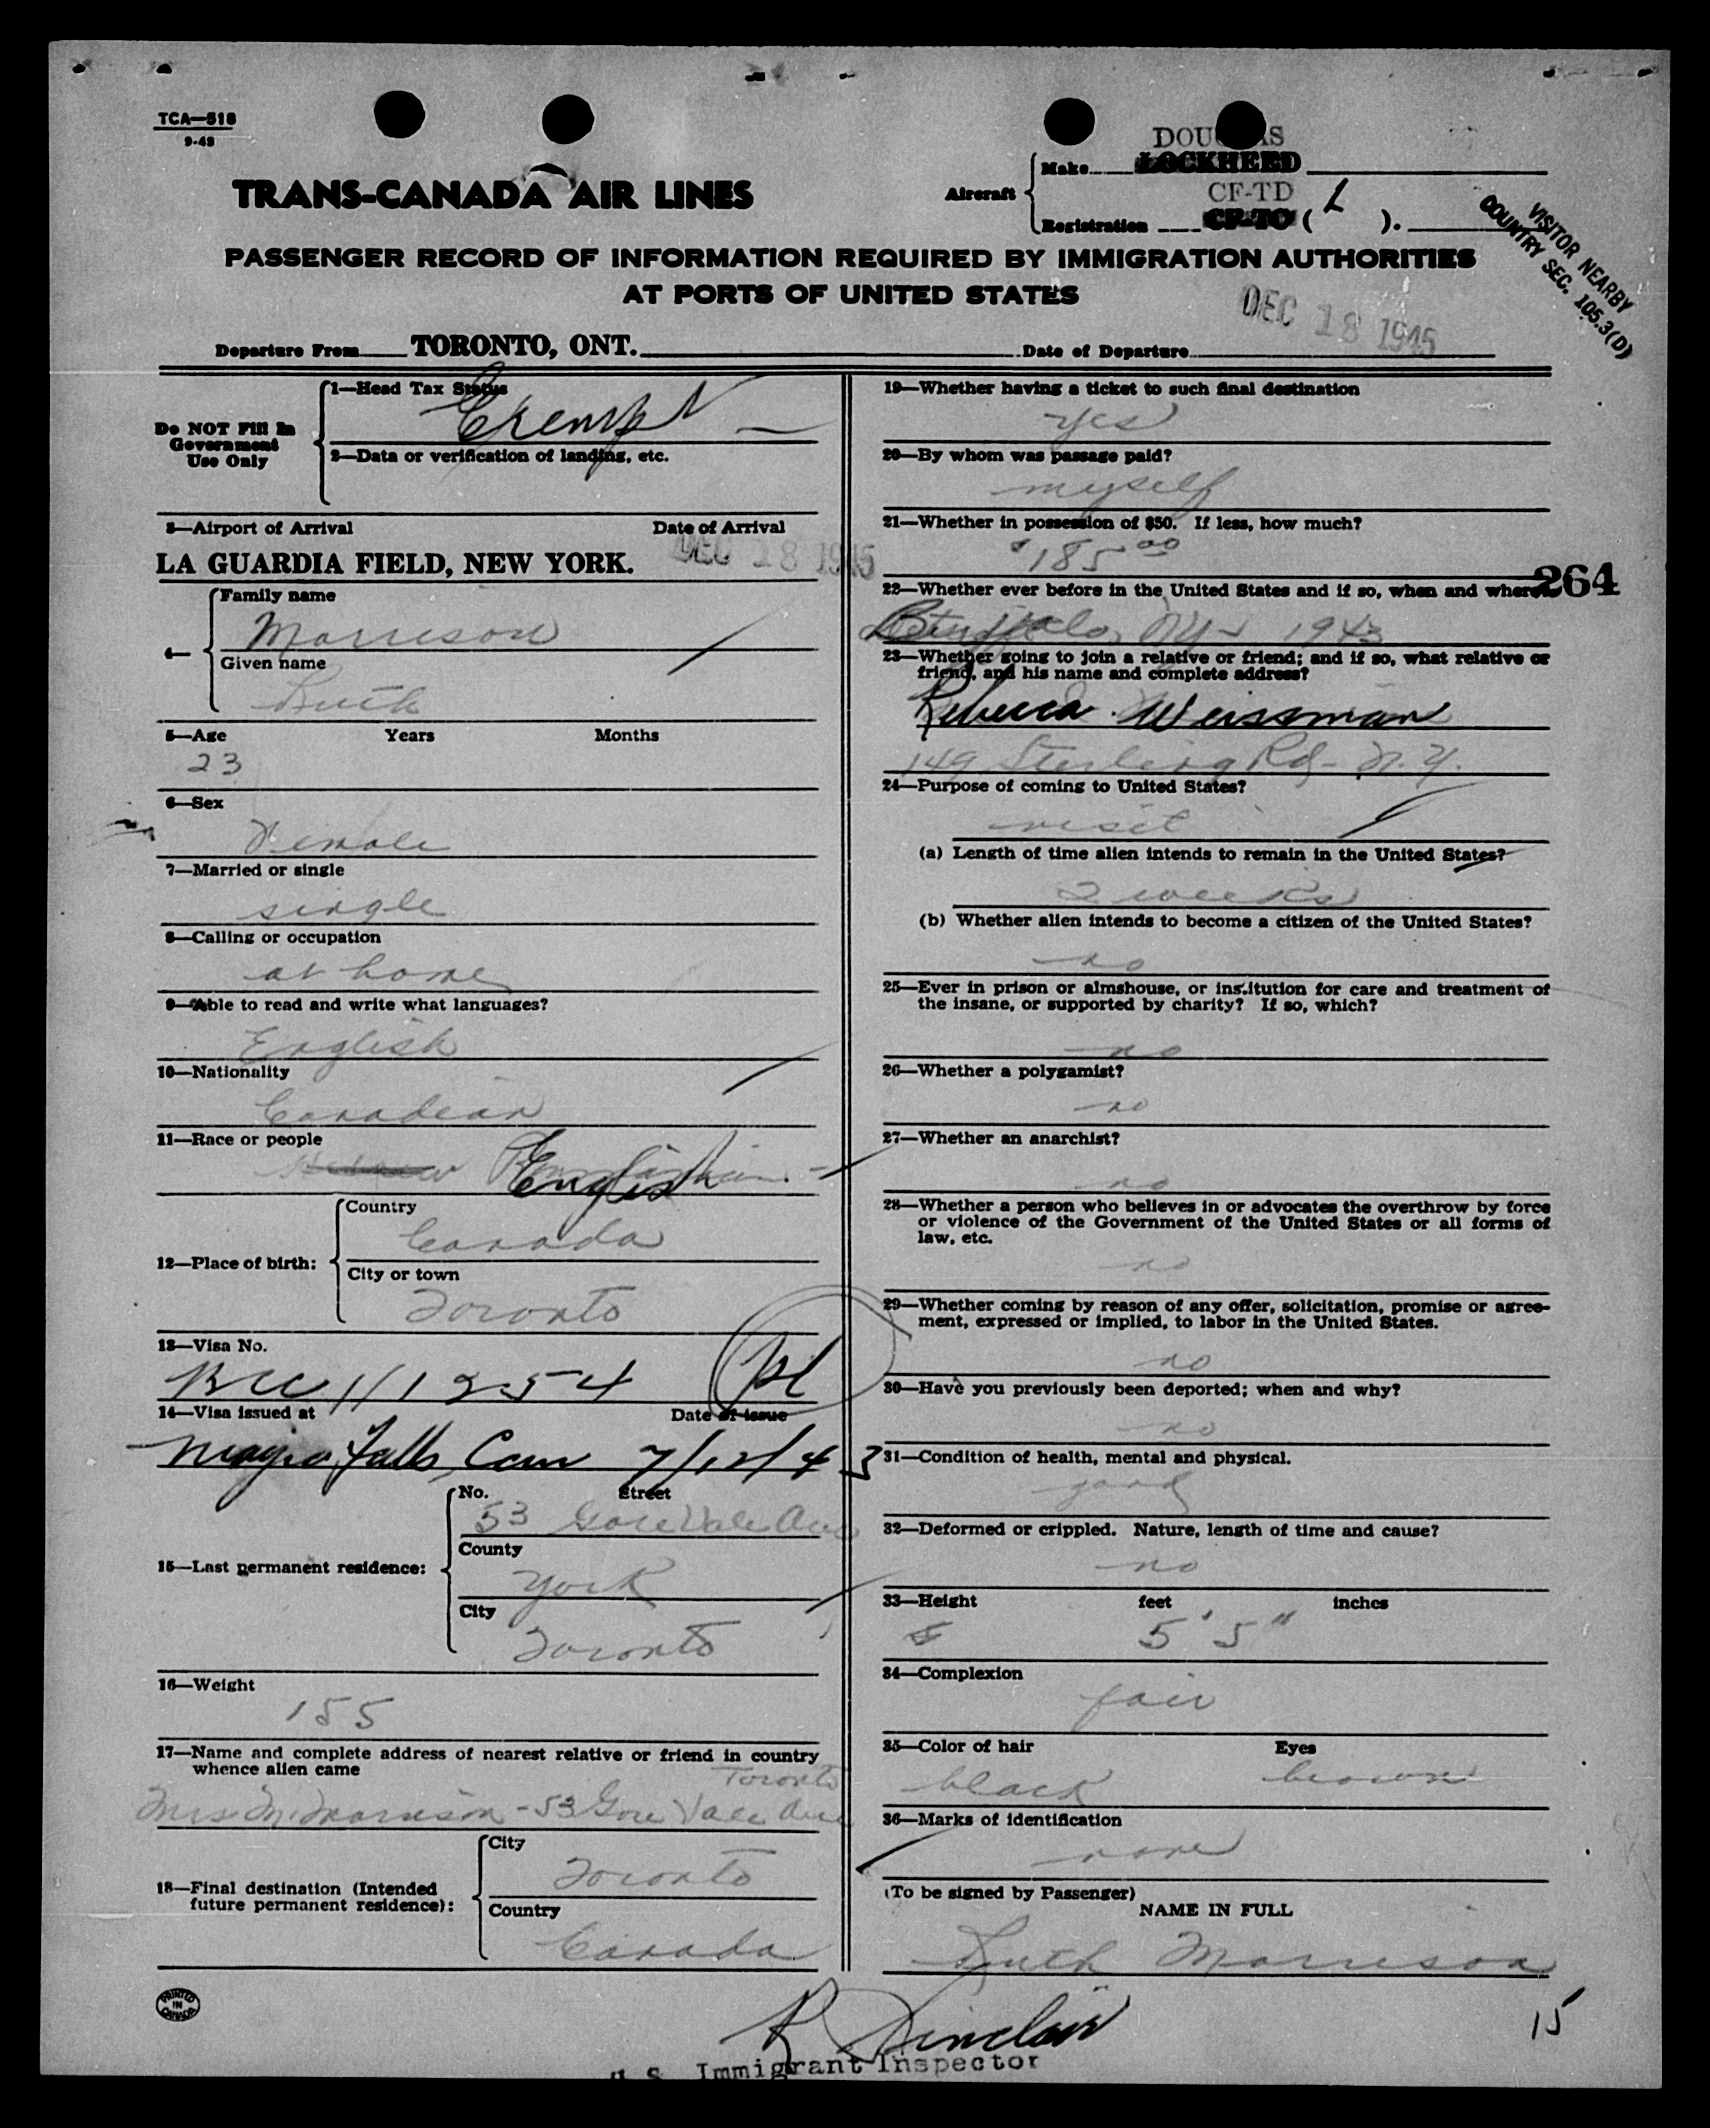 TCA—518
9-43
TRANS-CANADA AIR LINES
Aircraft
Make DOUGLAS
LOCKHEED
CF-TD
Registration CF-TO ( L ).
VISITOR NEARBY
COUNTRY SEC. 105.3(D)
PASSENGER RECORD OF INFORMATION REQUIRED BY IMMIGRATION AUTHORITIES
AT PORTS OF UNITED STATES
DEC 18 1945
Departure From TORONTO, ONT. Date of Departure
Do NOT Fill In
Government
Use Only
1—Head Tax Status
Exempt
2—Data or verification of landing, etc.
3—Airport of Arrival Date of Arrival
LA GUARDIA FIELD, NEW YORK. DEC 18 1945
4—
Family name
Morrison
Given name
Ruth
5—Age Years Months
23
6—Sex
Female
7—Married or single
single
8—Calling or occupation
at home
9—Able to read and write what languages?
English
10—Nationality
Canadian
11—Race or people
Hebrew English
12—Place of birth:
Country
Canada
City or town
Toronto
13—Visa No.
BCC 111254
14—Visa issued at Date of issue
Niagra Falls, Can 7/12/43
15—Last permanent residence:
No. Street
53 Gore Vale Ave
County
York
City
Toronto
16—Weight
155
17—Name and complete address of nearest relative or friend in country
whence alien came
Toronto
Mrs M. Morrison - 53 Gore Vale Ave
18—Final destination (Intended
future permanent residence):
City
Toronto
Country
Canada
PRINTED
IN
CANADA
19—Whether having a ticket to such final destination
yes
20—By whom was passage paid?
myself
21—Whether in possession of $50. If less, how much?
$185 00
264
22—Whether ever before in the United States and if so, when and where?
Buffalo, NY - 1943
23—Whether going to join a relative or friend; and if so, what relative or
friend, and his name and complete address?
Rebecca Weissman
149 Sterling Rd - N.Y.
24—Purpose of coming to United States?
visit
(a) Length of time alien intends to remain in the United States?
2 weeks
(b) Whether alien intends to become a citizen of the United States?
no
25—Ever in prison or almshouse, or institution for care and treatment of
the insane, or supported by charity? If so, which?
no
26—Whether a polygamist?
no
27—Whether an anarchist?
no
28—Whether a person who believes in or advocates the overthrow by force
or violence of the Government of the United States or all forms of
law, etc.
no
29—Whether coming by reason of any offer, solicitation, promise or agree-
ment, expressed or implied, to labor in the United States.
no
30—Have you previously been deported; when and why?
no
31—Condition of health, mental and physical.
good
32—Deformed or crippled. Nature, length of time and cause?
no
33—Height feet inches
5' 5"
34—Complexion
fair
35—Color of hair Eyes
black brown
36—Marks of identification
none
(To be signed by Passenger)
NAME IN FULL
Ruth Morrison
R Sinclair
U.S. Immigrant Inspector
15